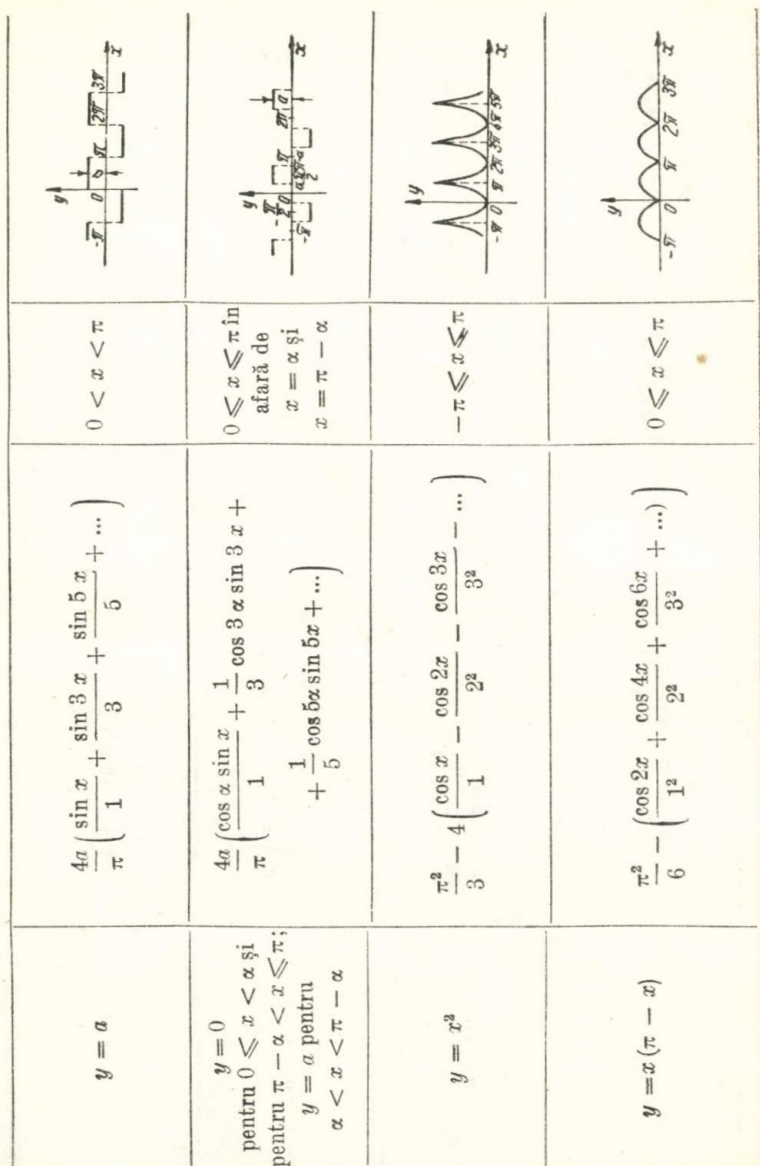 y = a
4a/π (sin x/1 + sin 3x/3 + sin 5x/5 + ...)
0 < x < π
y
a
-π 0 π 2π 3π x
y = 0
pentru 0 ⩽ x < α și
pentru π − α < x ⩽ π;
y = a pentru
α < x < π − α
4a/π (cos α sin x/1 + 1/3 cos 3 α sin 3 x +
+ 1/5 cos 5α sin 5x + ...)
0 ⩽ x ⩽ π în
afară de
x = α și
x = π − α
y
a
-π -π/2 0 π 2π x
y = x²
π²/3 − 4 (cos x/1 − cos 2x/2² − cos 3x/3² − ...)
−π ⩽ x ⩽ π
y
-π 0 π 2π 3π 4π 5π x
y = x (π − x)
π²/6 − (cos 2x/1² + cos 4x/2² + cos 6x/3² + ...))
0 ⩽ x ⩽ π
y
-π 0 π 2π 3π x